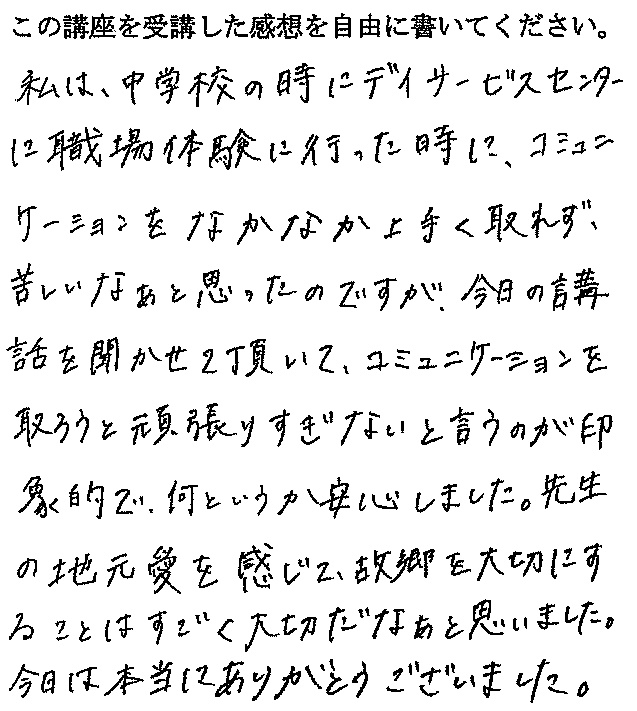 この講座を受講した感想を自由に書いてください。
私は、中学校の時にデイサービスセンター
に職場体験に行った時に、コミュニ
ケーションをなかなか上手く取れず、
苦しいなぁと思ったのですが、今日の講
話を聞かせて頂いて、コミュニケーションを
取ろうと頑張りすぎないと言うのが印
象的で、何というか安心しました。先生
の地元愛を感じて、故郷を大切にす
ることはすごく大切だなぁと思いました。
今日は本当にありがとうございました。